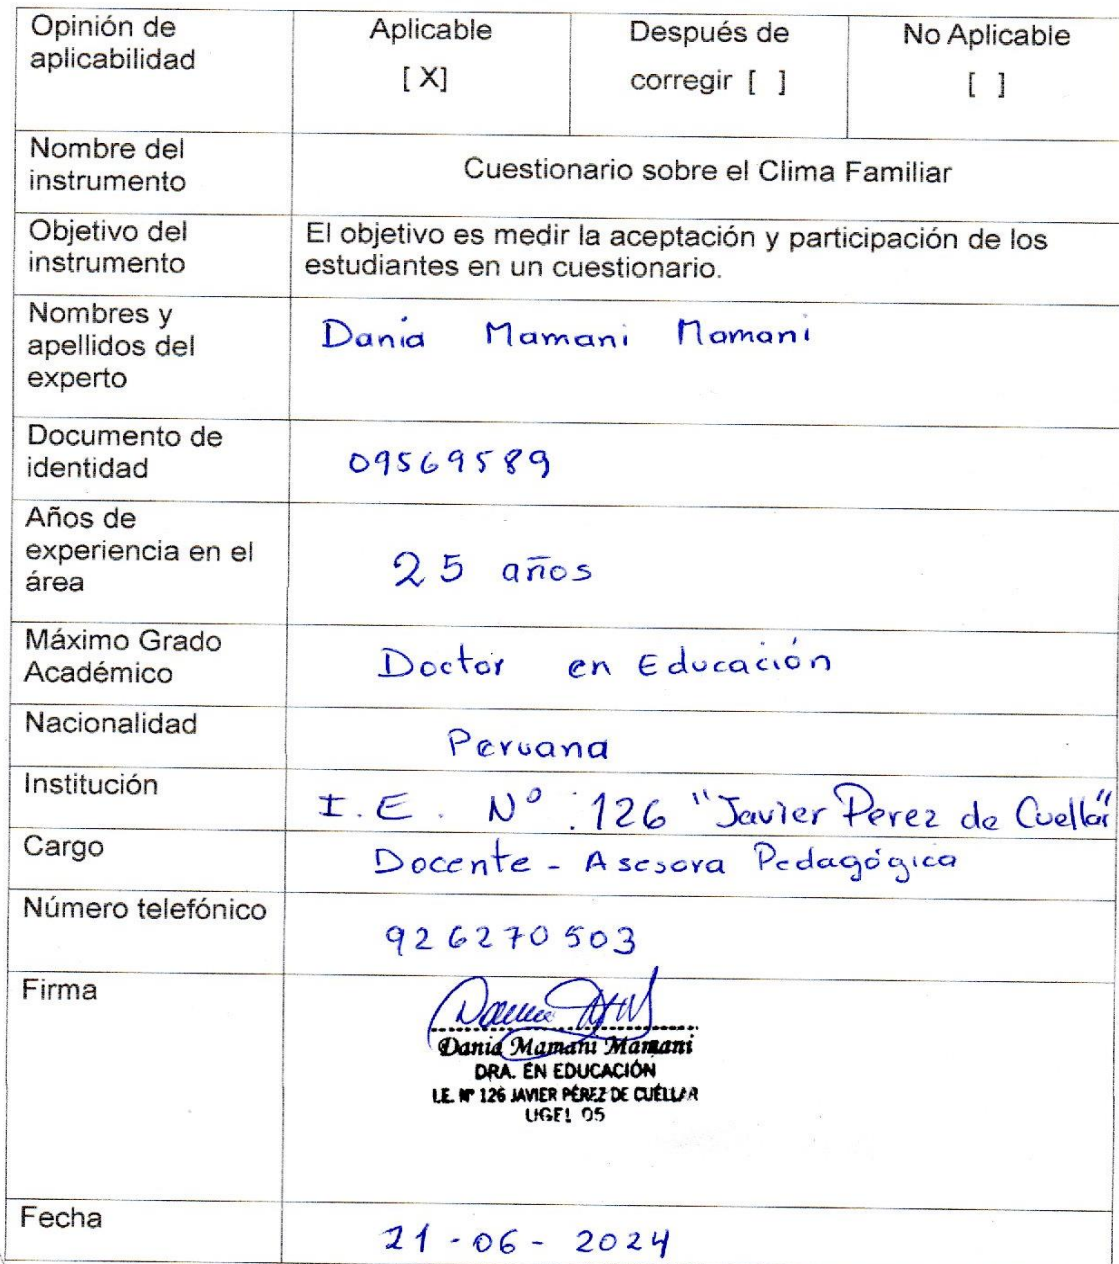 Opinión de aplicabilidad
Aplicable
[ X]
Después de
corregir [ ]
No Aplicable
[ ]
Nombre del instrumento
Cuestionario sobre el Clima Familiar
Objetivo del instrumento
El objetivo es medir la aceptación y participación de los
estudiantes en un cuestionario.
Nombres y apellidos del experto
Dania Mamani Mamani
Documento de identidad
09569589
Años de experiencia en el área
25 años
Máximo Grado Académico
Doctor en Educación
Nacionalidad
Peruana
Institución
I.E. Nº 126 "Javier Perez de Cuellar"
Cargo
Docente - Asesora Pedagógica
Número telefónico
926270503
Firma
Dania Mamani Mamani
DRA. EN EDUCACIÓN
I.E. Nº 126 JAVIER PÉREZ DE CUÉLLAR
UGEL 05
Fecha
21-06-2024